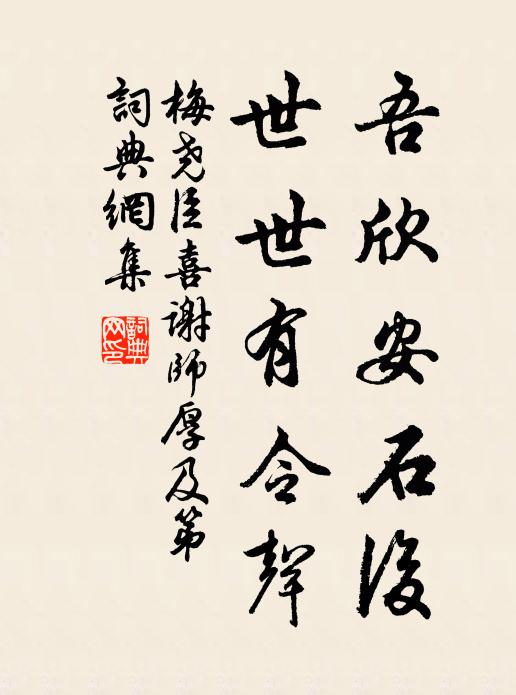 吾欣安石後
世世有令聲
梅堯臣喜謝師厚及第
詞典網集
詞典网印